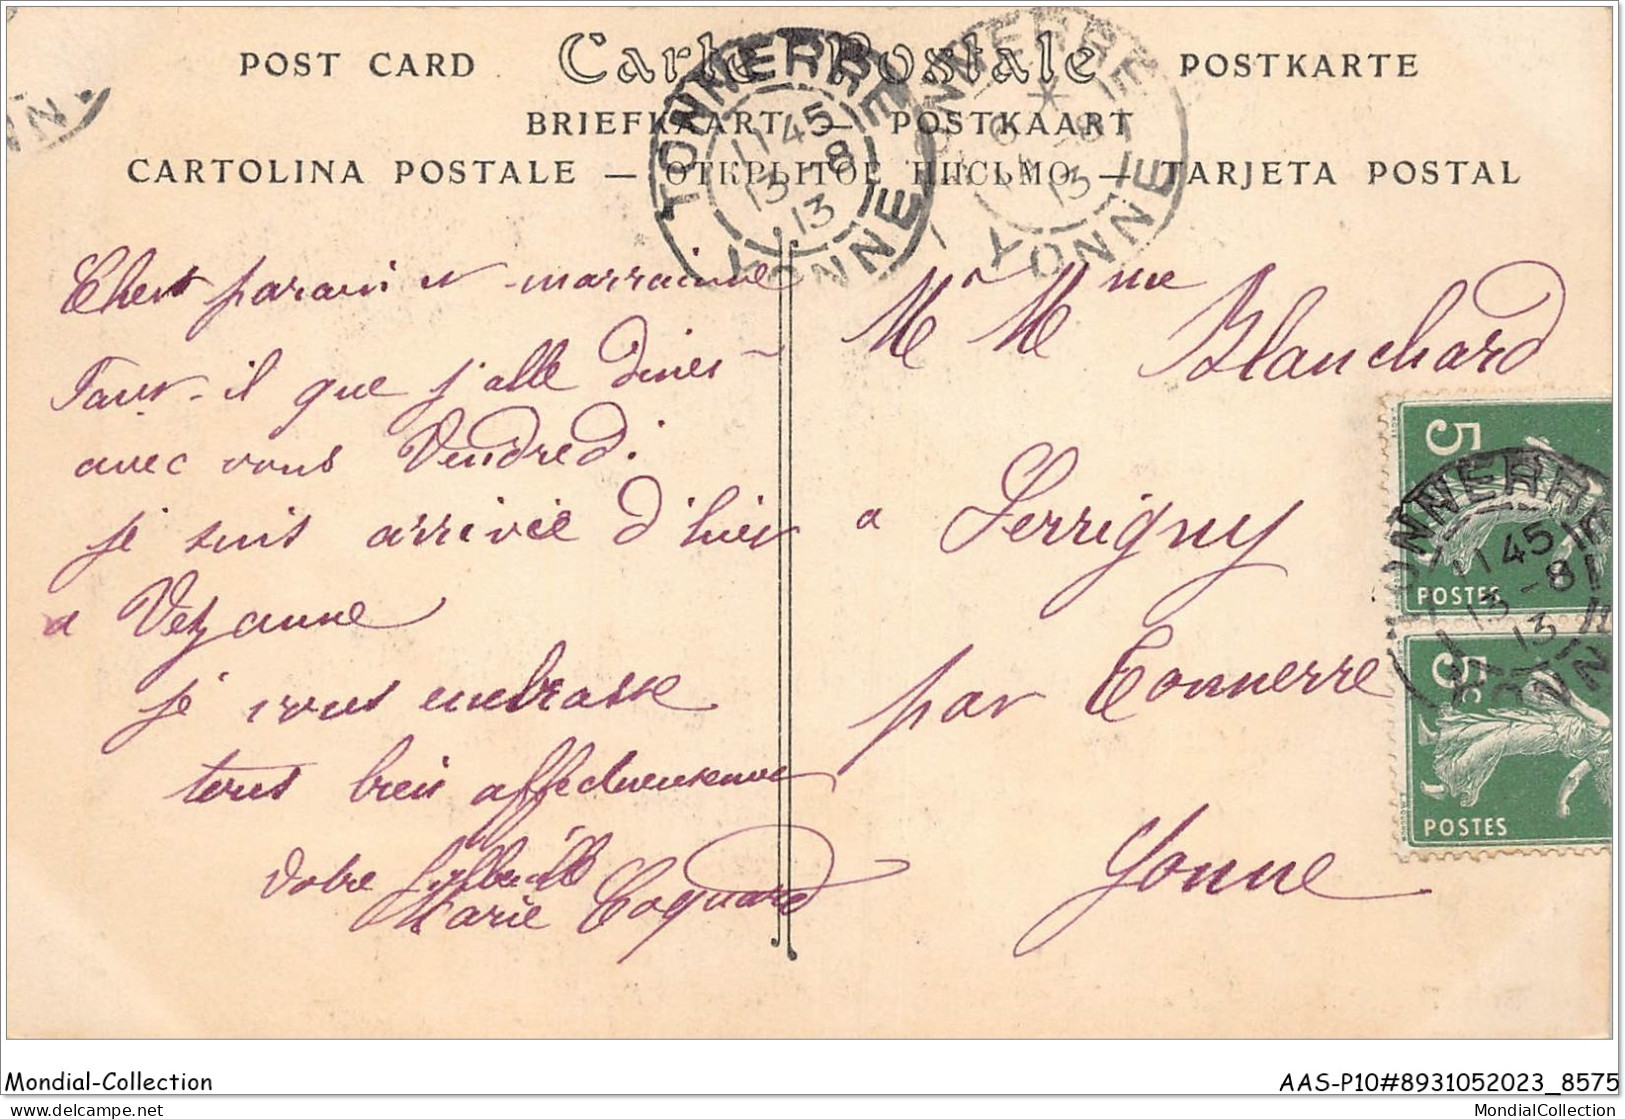 POST CARD Carte Postale POSTKARTE
BRIEFKAART — POSTKAART
CARTOLINA POSTALE — ОТКРЫТОЕ ПИСЬМО — TARJETA POSTAL
TONNERRE
11 45
13 - 8
13
YONNE
TONNERRE
YONNE
Chers parain et marraine
Faut-il que j'alle diner
avec vous Vendredi
je suis arrivée d'hier
a Vezanne
je vous embrasse
tous bien affectueusement
Votre
Marie Coquard
Mr Mme Blanchard
a Serrigny
par Tonnerre
Yonne
5c
POSTES
TONNERRE
11 45
13 - 8
13
YONNE
5c
POSTES
Mondial-Collection
AAS-P10#8931052023_8575
delcampe.net
MondialCollection